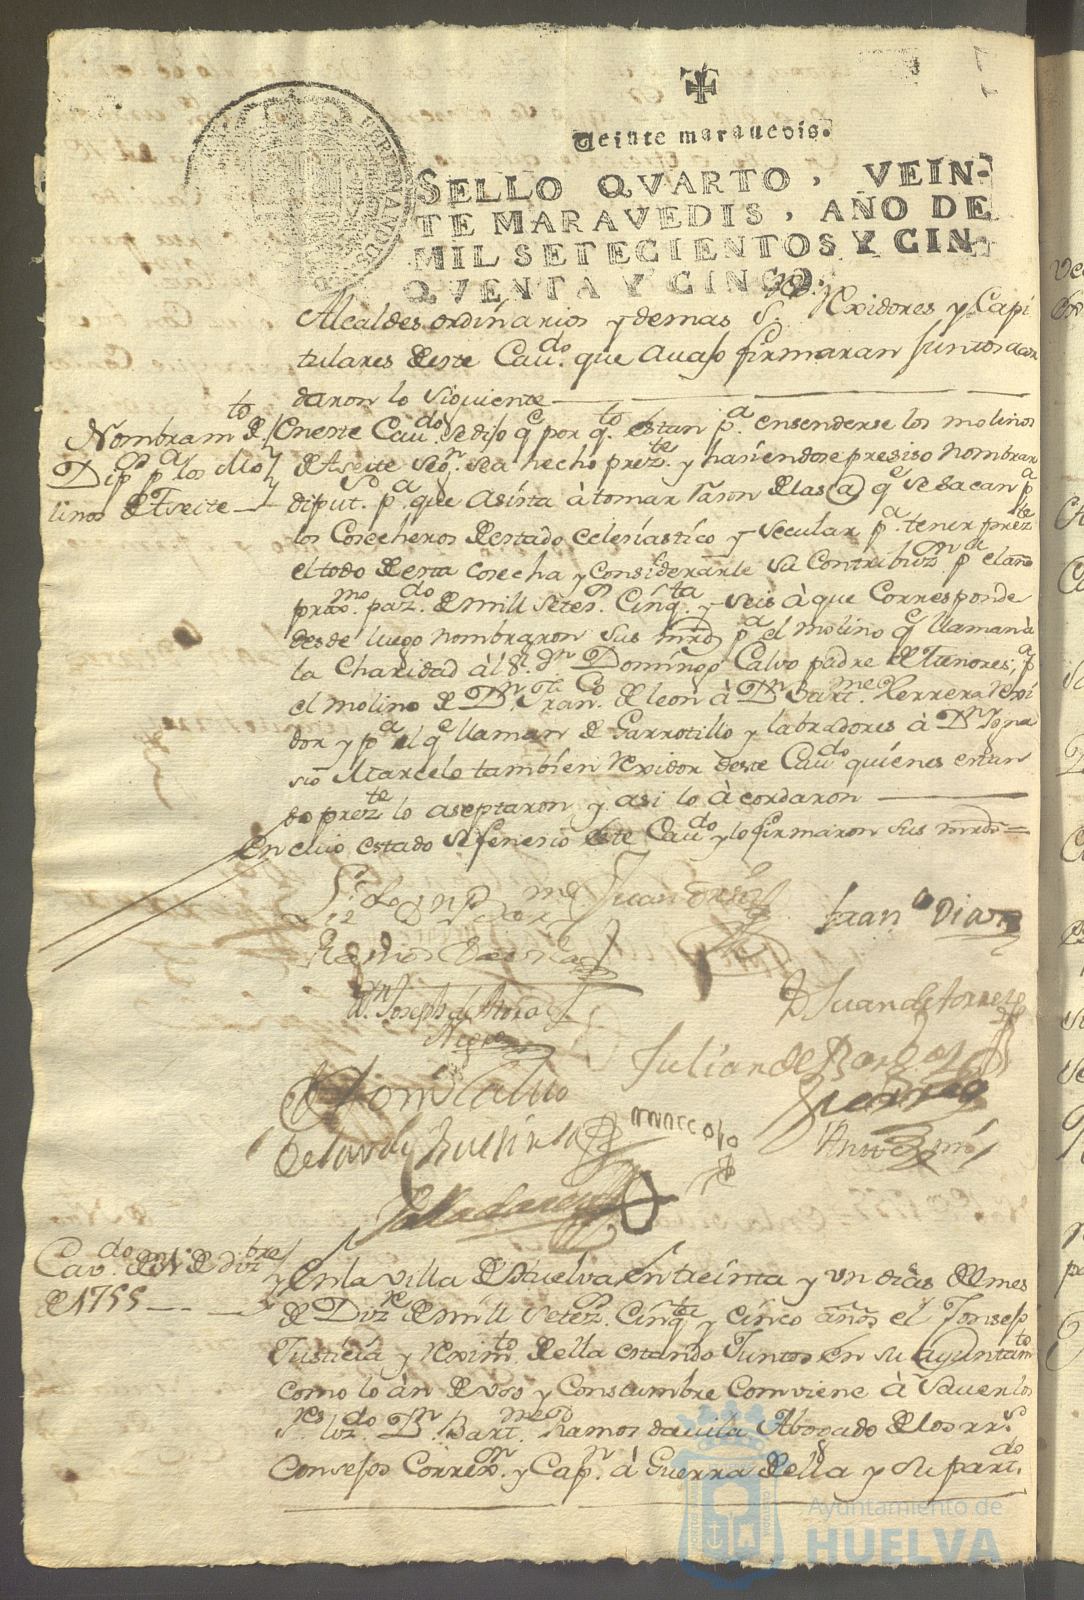 Veinte maravedis.
SELLO QVARTO, VEIN-
TE MARAVEDIS, AÑO DE
MIL SETECIENTOS Y CIN-
QVENTA Y CINCO.
Alcaldes ordinarios y demas S.res Rexidores y Capi
tulares deste Cau.do que auajo firmaran juntos acor
daron lo siguiente
Nombram.to de
Dip.os p.a los Mo
linos de Aseite
En este Cau.do se dijo q.e por q.to estan p.a ensenderse los molinos
de Aseite seg.n sea hecho prez.te y haviendose presiso nombrar
diput.os p.a que asista à tomar rason de las @ q.e se sacan p.a
los Cosecheros de estado eclesiastico y secular p.a tener prez.te
el todo de esta cosecha y considerarle su contribuz.n p.a el año
prox.mo paz.do de mill setez.os Cinq.ta y seis à que corresponde
desde luego nombraron sus mrds p.a el molino q.e llaman à
la Charidad à el S.r D.n Domingo Calvo padre de Menores, p.a
el molino de D.n Fran.co de leon à D.n Bart.me Herrera Rexi
dor y p.a el q.e llaman de Garrotillo y labradores à D.n Igna
sio Marcelo tambien Rexidor deste Cau.do quienes estan
do prez.te lo aseptaron y asi lo àcordaron
En cuio estado se fenesio este Cau.do y lo firmaron sus mrds=
Fran.co Diaz
D.n Joseph de
D Juan de torres
Julian de
Dom.o Caluo
Marcelo
Cav.do de 31 de diz.bre
de 1755
En la villa de Huelva en treinta y un dias del mes
de Diz.re de mill setez.os Cinq.ta y cinco años el Consejo
Justicia y Rexim.to de ella estando Juntos en su ayuntam.to
como lo àn de vso y Constumbre comviene à saver los
S.res liz.do D.n Bart.me Ramos davila Abogado de los rr.s
Consejos Correx.or y Cap.n à Guerra de ella y su part.do
Ayuntamiento de
HUELVA